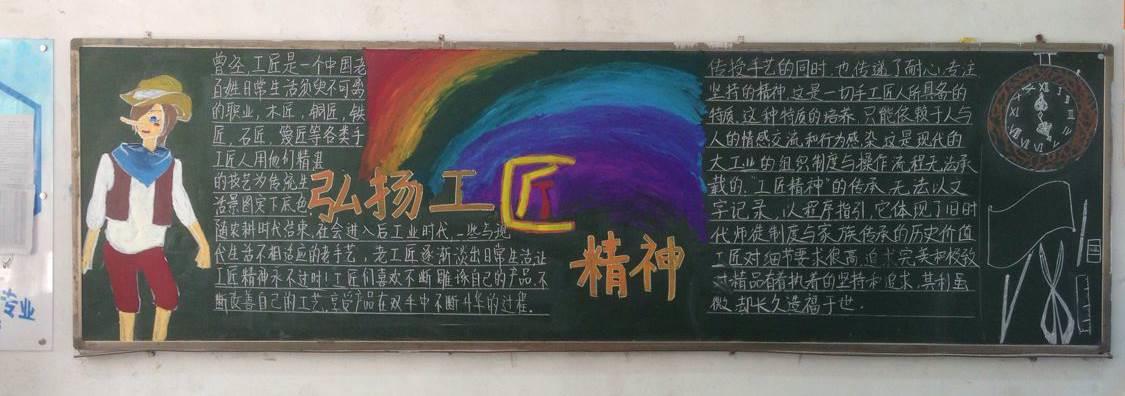 曾经,工匠是一个中国老
百姓日常生活须臾不可离
的职业,木匠、铜匠、铁
匠、石匠、篾匠等各类手
工匠人用他们精湛
的技艺为传统生
活景图定下底色.
随农耕时代结束,社会进入后工业时代,一些与现
代生活不相适应的老手艺,老工匠逐渐淡出日常生活,让
工匠精神永不过时!工匠们喜欢不断雕琢自己的产品,不
断改善自己的工艺,享受产品在双手中不断升华的过程.
弘扬工匠
精神
传授手艺的同时,也传递了耐心,专注
坚持的精神,这是一切手工匠人所具备的
特质.这种特质的培养,只能依赖于人与
人的情感交流和行为感染,这是现代的
大工业的组织制度与操作流程无法承
载的."工匠精神"的传承,无法以文
字记录,以程序指引,它体现了旧时
代师徒制度与家族传承的历史价值
工匠对细节要求很高,追求完美和极致
对精品有着执着的坚持和追求,其利虽
微,却长久造福于世.
专业